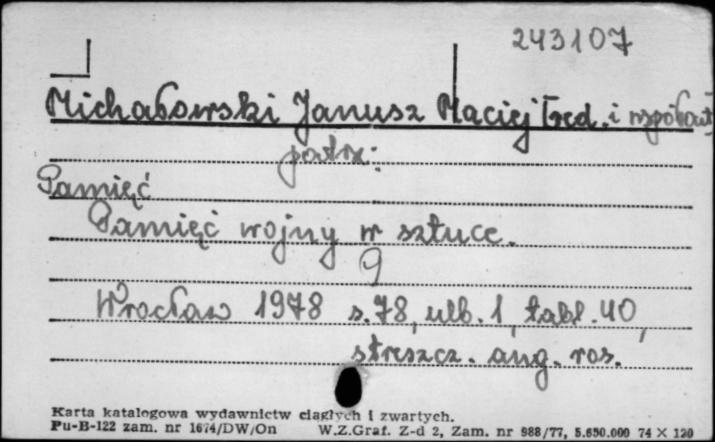 243107
Michałowski Janusz Maciej [red. i współaut]
patrz:
Pamięć
Pamięć wojny w sztuce.
9
Wrocław 1978 s. 78, ulb. 1, tabl. 40,
streszcz. ang. ros.
Karta katalogowa wydawnictw ciągłych i zwartych.
Pu-B-122 zam. nr 1674/DW/On W.Z.Graf. Z-d 2, Zam. nr 988/77, 5.650.000 74 X 120